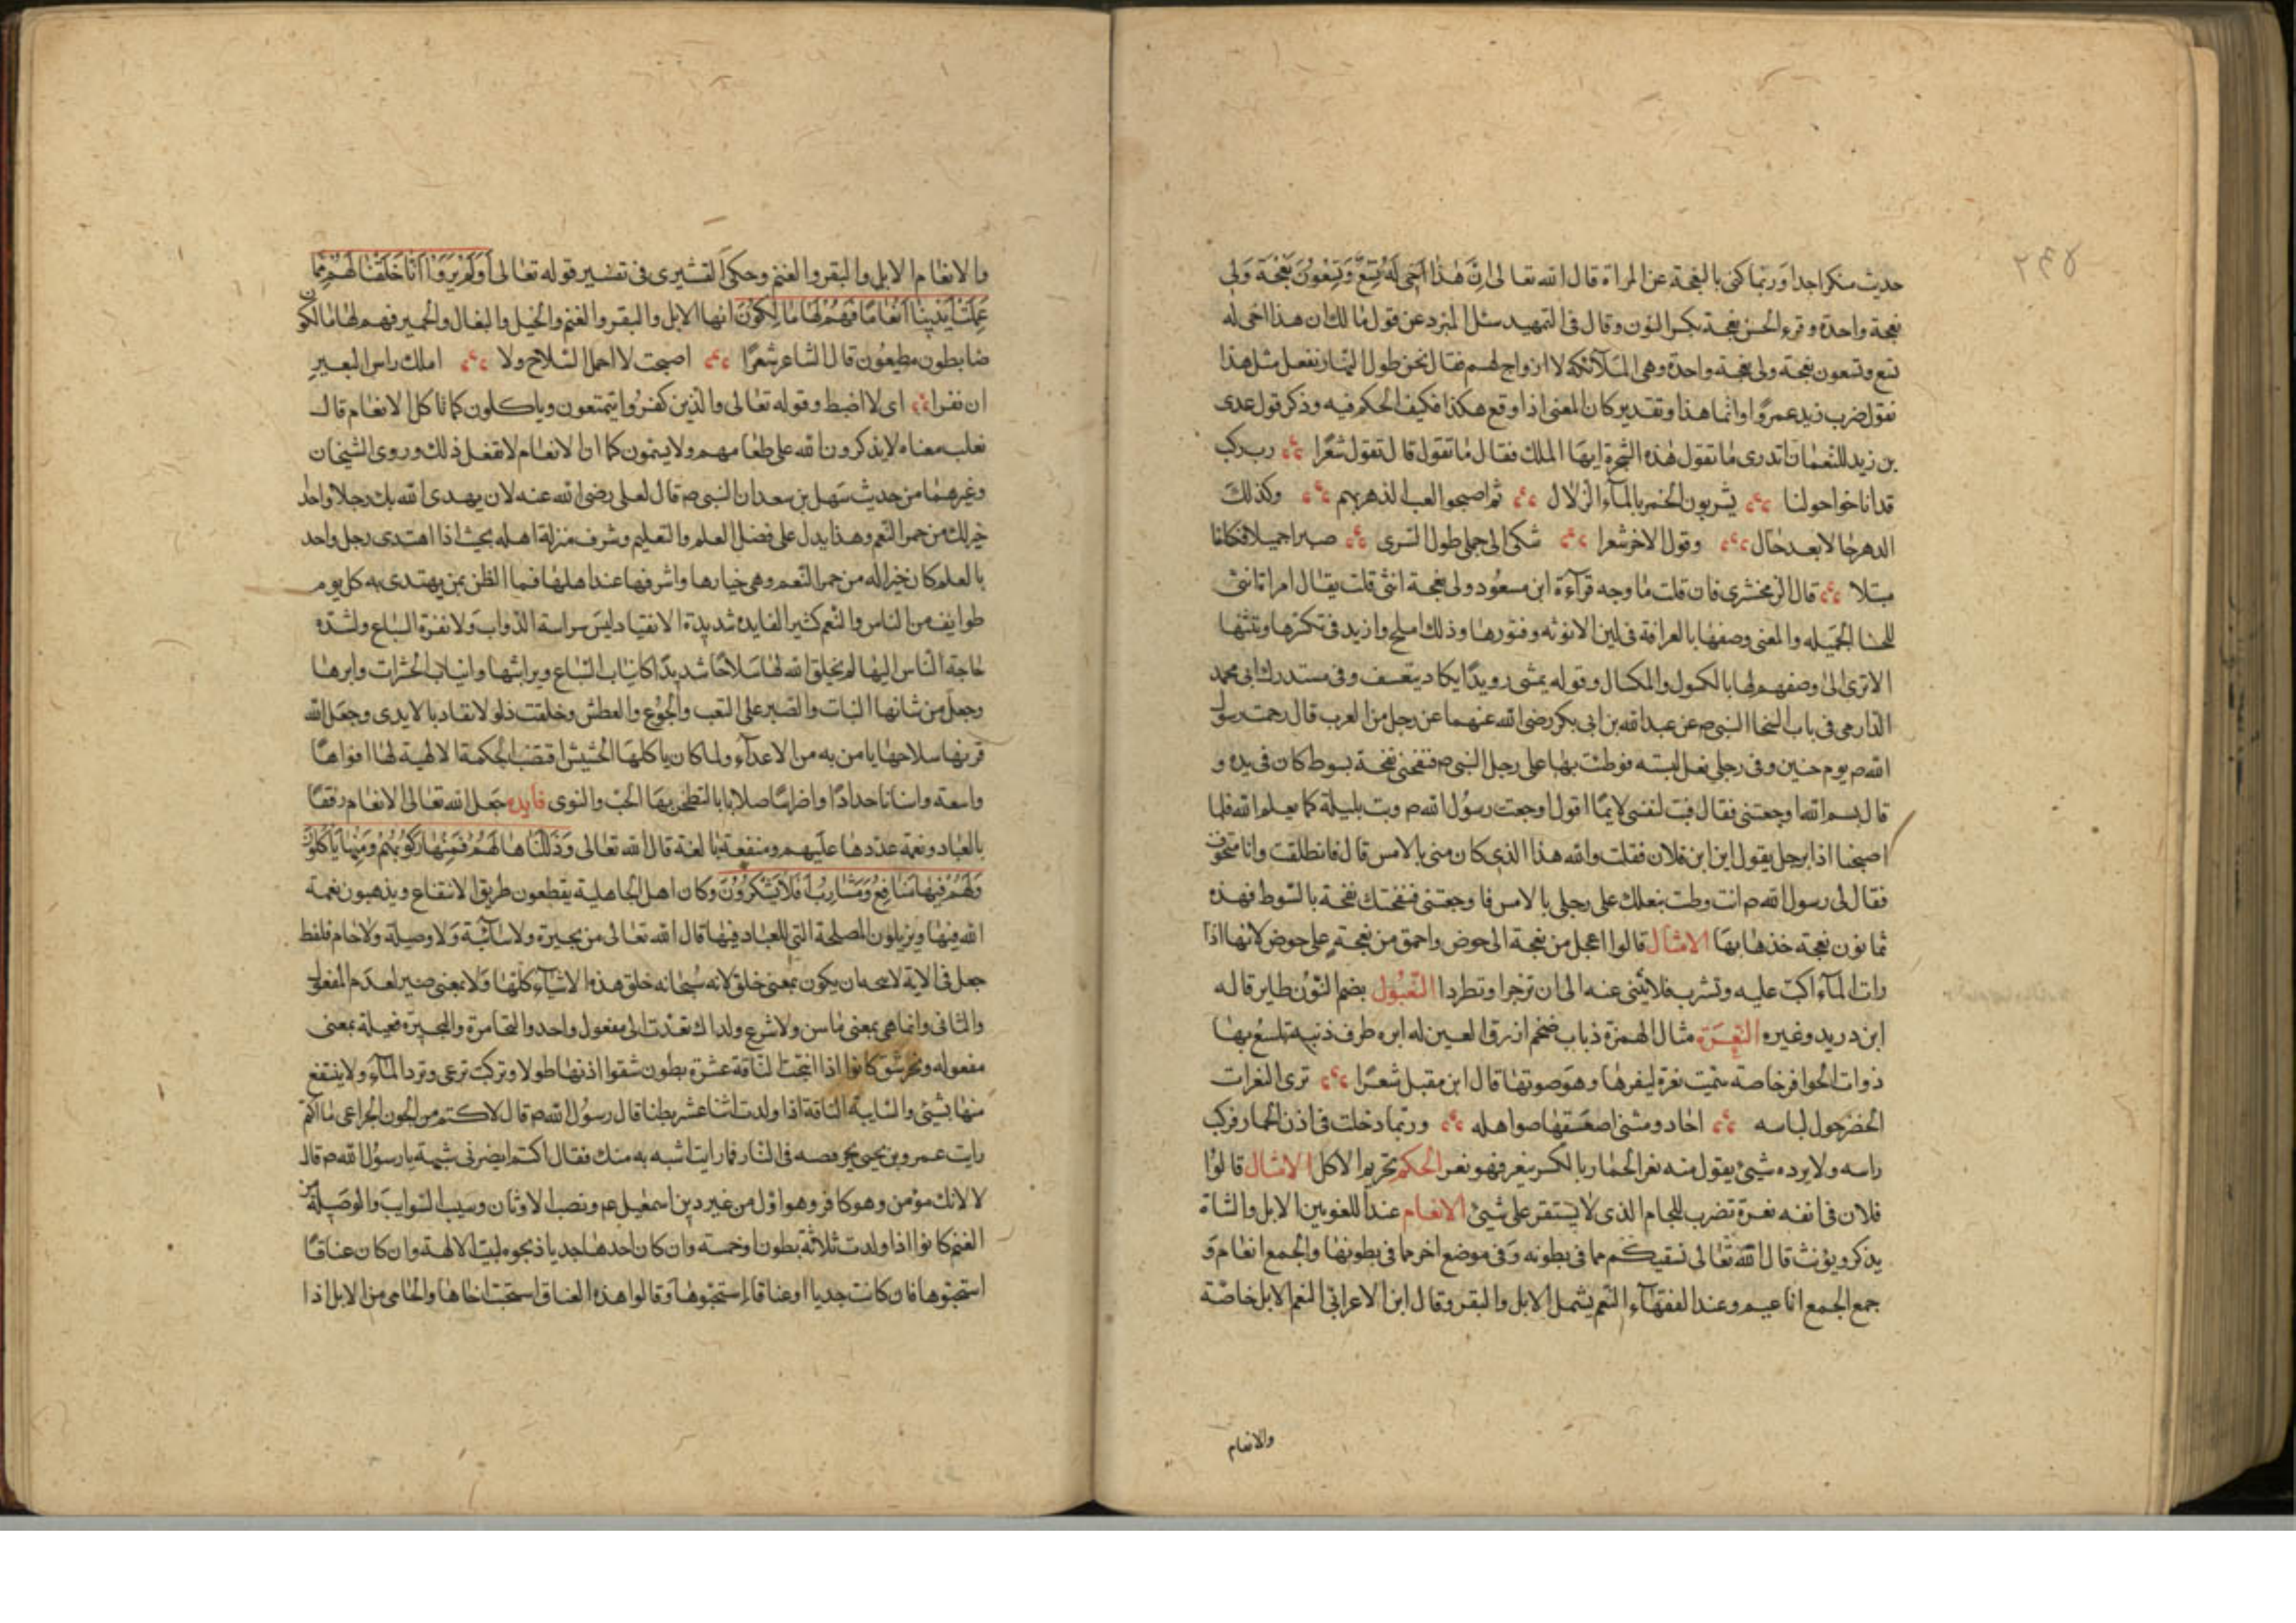 حديث منكر اجدا وربما كنى بالنعجة عن المراة قال الله تعالى اِنَّ هٰذَا اَخى لَهُ تِسْعٌ وَتِسْعُونَ نَعْجَةً وَلِى
نعجة واحدة وقرء الحسن نعجة بكسر النون وقال فى التمهيد سئل المبرد عن قول مالك ان هذا اخى له
تسع وتسعون نعجة ولى نعجة واحدة وهى الملآئكة لا ازواج لهم فقال نحن طول النهار نفعل مثل هذا
نقول ضرب زيد عمروًا وانما هذا وتقدير كان المعنى اذا وقع هكذا فكيف الحكم فيه وذكر قول عدى
بن زيد للنعمان اتدرى ما تقول هذه الشجرة ايها الملك فقال ما تقول قال تقول شعرًا رب ركب
قد اناخوا حولنا يشربون الخمر بالمآء الزلال ثم اصبحوا لعب الدهر بهم وكذلك
الدهر حالا بعد حال وقول الاخر شعرا شكى الى جملى طول السرى صبرا جميلا فكلانا
مبتلا قال الزمخشرى فان قلت ما وجه قرآءة ابن مسعود ولى نعجة انثى قلت يقال امراة انثى
للحسنا الجميله والمعنى وصفها بالعرافة فى لين الانوثه وفتورها وذلك املح وازيد فى تكسرها وتثنيها
الا ترى الى وصفهم لها بالكسول والمكسال وقوله يمشى رويدًا يكاد يتغسف وفى مستدرك ابى محمد
الدارمى فى باب السخا النبى صم عن عبد الله بن ابى بكر رضى الله عنهما عن رجل من العرب قال زحمت رسول
الله صم يوم حنين وفى رجلى نعل لبسته فوطئت بها على رجل النبى صم فنفحنى نفحة بسوط كان فى يده و
قال بسم الله اوجعتنى فقال فبت لنفسى لايمًا اقول اوجعت رسول الله صم وبت بليلة كما يعلم الله فلما
اصبحنا اذا برجل يقول اين ابن فلان فقلت والله هذا الذى كان منى بالامس قال فانطلقت وانا متخوف
فقال لى رسول الله صم انت وطئت بنعلك على رجلى بالامس فاوجعتنى فنفحتك نفحة بالسوط فهذه
ثمانون نعجة خذها بها الامثال قالوا اعجل من نعجة الى حوض واحمق من نعجة على حوض لانها اذا
رات المآء اكبت عليه وتشرب فلا يثنى عنه الى ان تزجر او تطرد التعبول بضم النون طاير قاله
ابن دريد وغيره النعرة مثال الهمزة ذباب ضخم ازرق العين له ابره طرف ذنبه تلسع بها
ذوات الحوافر خاصة سميت نعرة لنعرها وهو صوتها قال ابن مقبل شعرًا ترى النعرات
الخضر حول لباسه احاد ومثنى اصعقها صواهله وربما دخلت فى اذن الحمار فركب
راسه ولا يرده شيئ يقول منه نعر الحمار بالكسر ينعر فهو نعر الحكم تحريم الاكل الامثال قالوا
فلان فى انفه نعرة تضرب للجام الذى لا يستقر على شيئ الانعام عند اللغويين الابل والشاة
يذكر ويؤنث قال الله تعالى نسقيكم مما فى بطونه وفى موضع اخر مما فى بطونها والجمع انعام و
جمع الجمع اناعيم وعند الفقهآء النعم يشمل الابل والبقر وقال ابن الاعرابى النعم الابل خاصة
والانعام
والانعام الابل والبقر والغنم وحكى القشيرى فى تفسير قوله تعالى اَوَلَمْ يَرَوْا اَنَّا خَلَقْنَا لَهُمْ مِمَّا
عَمِلَتْ اَيْدِينَا اَنْعَامًا فَهُمْ لَهَا مَالِكُونَ انها الابل والبقر والغنم والخيل والبغال والحمير فهم لها مالكون
ضابطون مطيعون قال الشاعر شعرًا اصبحت لا احمل السلاح ولا املك راس البعير
ان نفرا اى لا اضبط وقوله تعالى والذين كفروا يتمتعون وياكلون كما تاكل الانعام قال
ثعلب معناه لا يذكرون الله على طعامهم ولا يسمون كما ان الانعام لا تفعل ذلك وروى الشيخان
وغيرهما من حديث سهل بن سعد ان النبى صم قال لعلى رضى الله عنه لان يهدى الله بك رجلا واحد
خير لك من حمر النعم وهذا يدل على فضل العلم والتعليم وشرف منزلة اهله بحيث اذا اهتدى رجل واحد
بالعلم كان خيرا له من حمر النعم وهى خيارها واشرفها عند اهلها فما الظن بمن يهتدى به كل يوم
طوايف من الناس والنعم كثير الفايده شديدة الانقياد ليس سراسة الدواب ولا نفرة السباع ولشدة
حاجة الناس اليها لم يخلق الله لها سلاحًا شديدًا كانياب السباع وبراثنها وانياب الحشرات وابرها
وجعل من شانها الثبات والصبر على التعب والجوع والعطش وخلقت ذلولا تقاد بالايدى وجعل الله
قرنها سلاحها يامن به من الاعدآء ولما كان ياكلها الحشيش اقتضت الحكمة الالهية لها افواهًا
واسعة واسنانا حدادًا واضراسًا صلابا بالتطحن بها الحب والنوى فايده جعل الله تعالى الانعام رفقًا
بالعباد ونعمة عددها عليهم ومنفعة بالغة قال الله تعالى وَذَلَّلْنَاهَا لَهُمْ فَمِنْهَا رَكُوبُهُمْ وَمِنْهَا يَاْكُلُونَ
وَلَهُمْ فِيهَا مَنَافِعُ وَمَشَارِبُ اَفَلَا يَشْكُرُونَ وكان اهل الجاهلية يقطعون طريق الانتفاع ويذهبون نعمة
الله فيها ويزيلون المصلحة التى للعباد فيها قال الله تعالى من بحيرة ولا سآئبة ولا وصيلة ولا حام فلفظ
جعل فى الاية لا يتجه ان يكون بمعنى خلق لانه سبحانه خلق هذه الاشيآء كلها ولا بمعنى صير لعدم المفعول
والثانى وانما هى بمعنى ما سن ولا شرع ولذلك تعدت الى مفعول واحد والبحيرة فعيلة بمعنى
مفعوله كانوا اذا انتجت الناقة عشرة بطون شقوا اذنها طولا وتركت ترعى وترد المآء ولا ينتفع
منها بشيئ والسايبة الناقة اذا ولدت اثنا عشر بطنا قال رسول الله صم قال لاكتم من الجون الجزاعى يا اكتم
رايت عمرو بن يحيى يجر قصبه فى النار فما رايت اشبه به منك فقال اكتم ايضرنى شبهه يا رسول الله صم قال
لا لانك مؤمن وهو كافر وهو اول من غير دين اسمعيل عم ونصب الاوثان وسيب السوايب والوصيلة من
الغنم كانوا اذا ولدت ثلاثة بطون او خمسة وان كان احدها جديا ذبحوه لبيت الالهة وان كان عناقًا
استحيوها فان كانت جديا او عناقا استحيوها وقالوا هذه العناق استحيت اخاها والحامى من الابل اذا